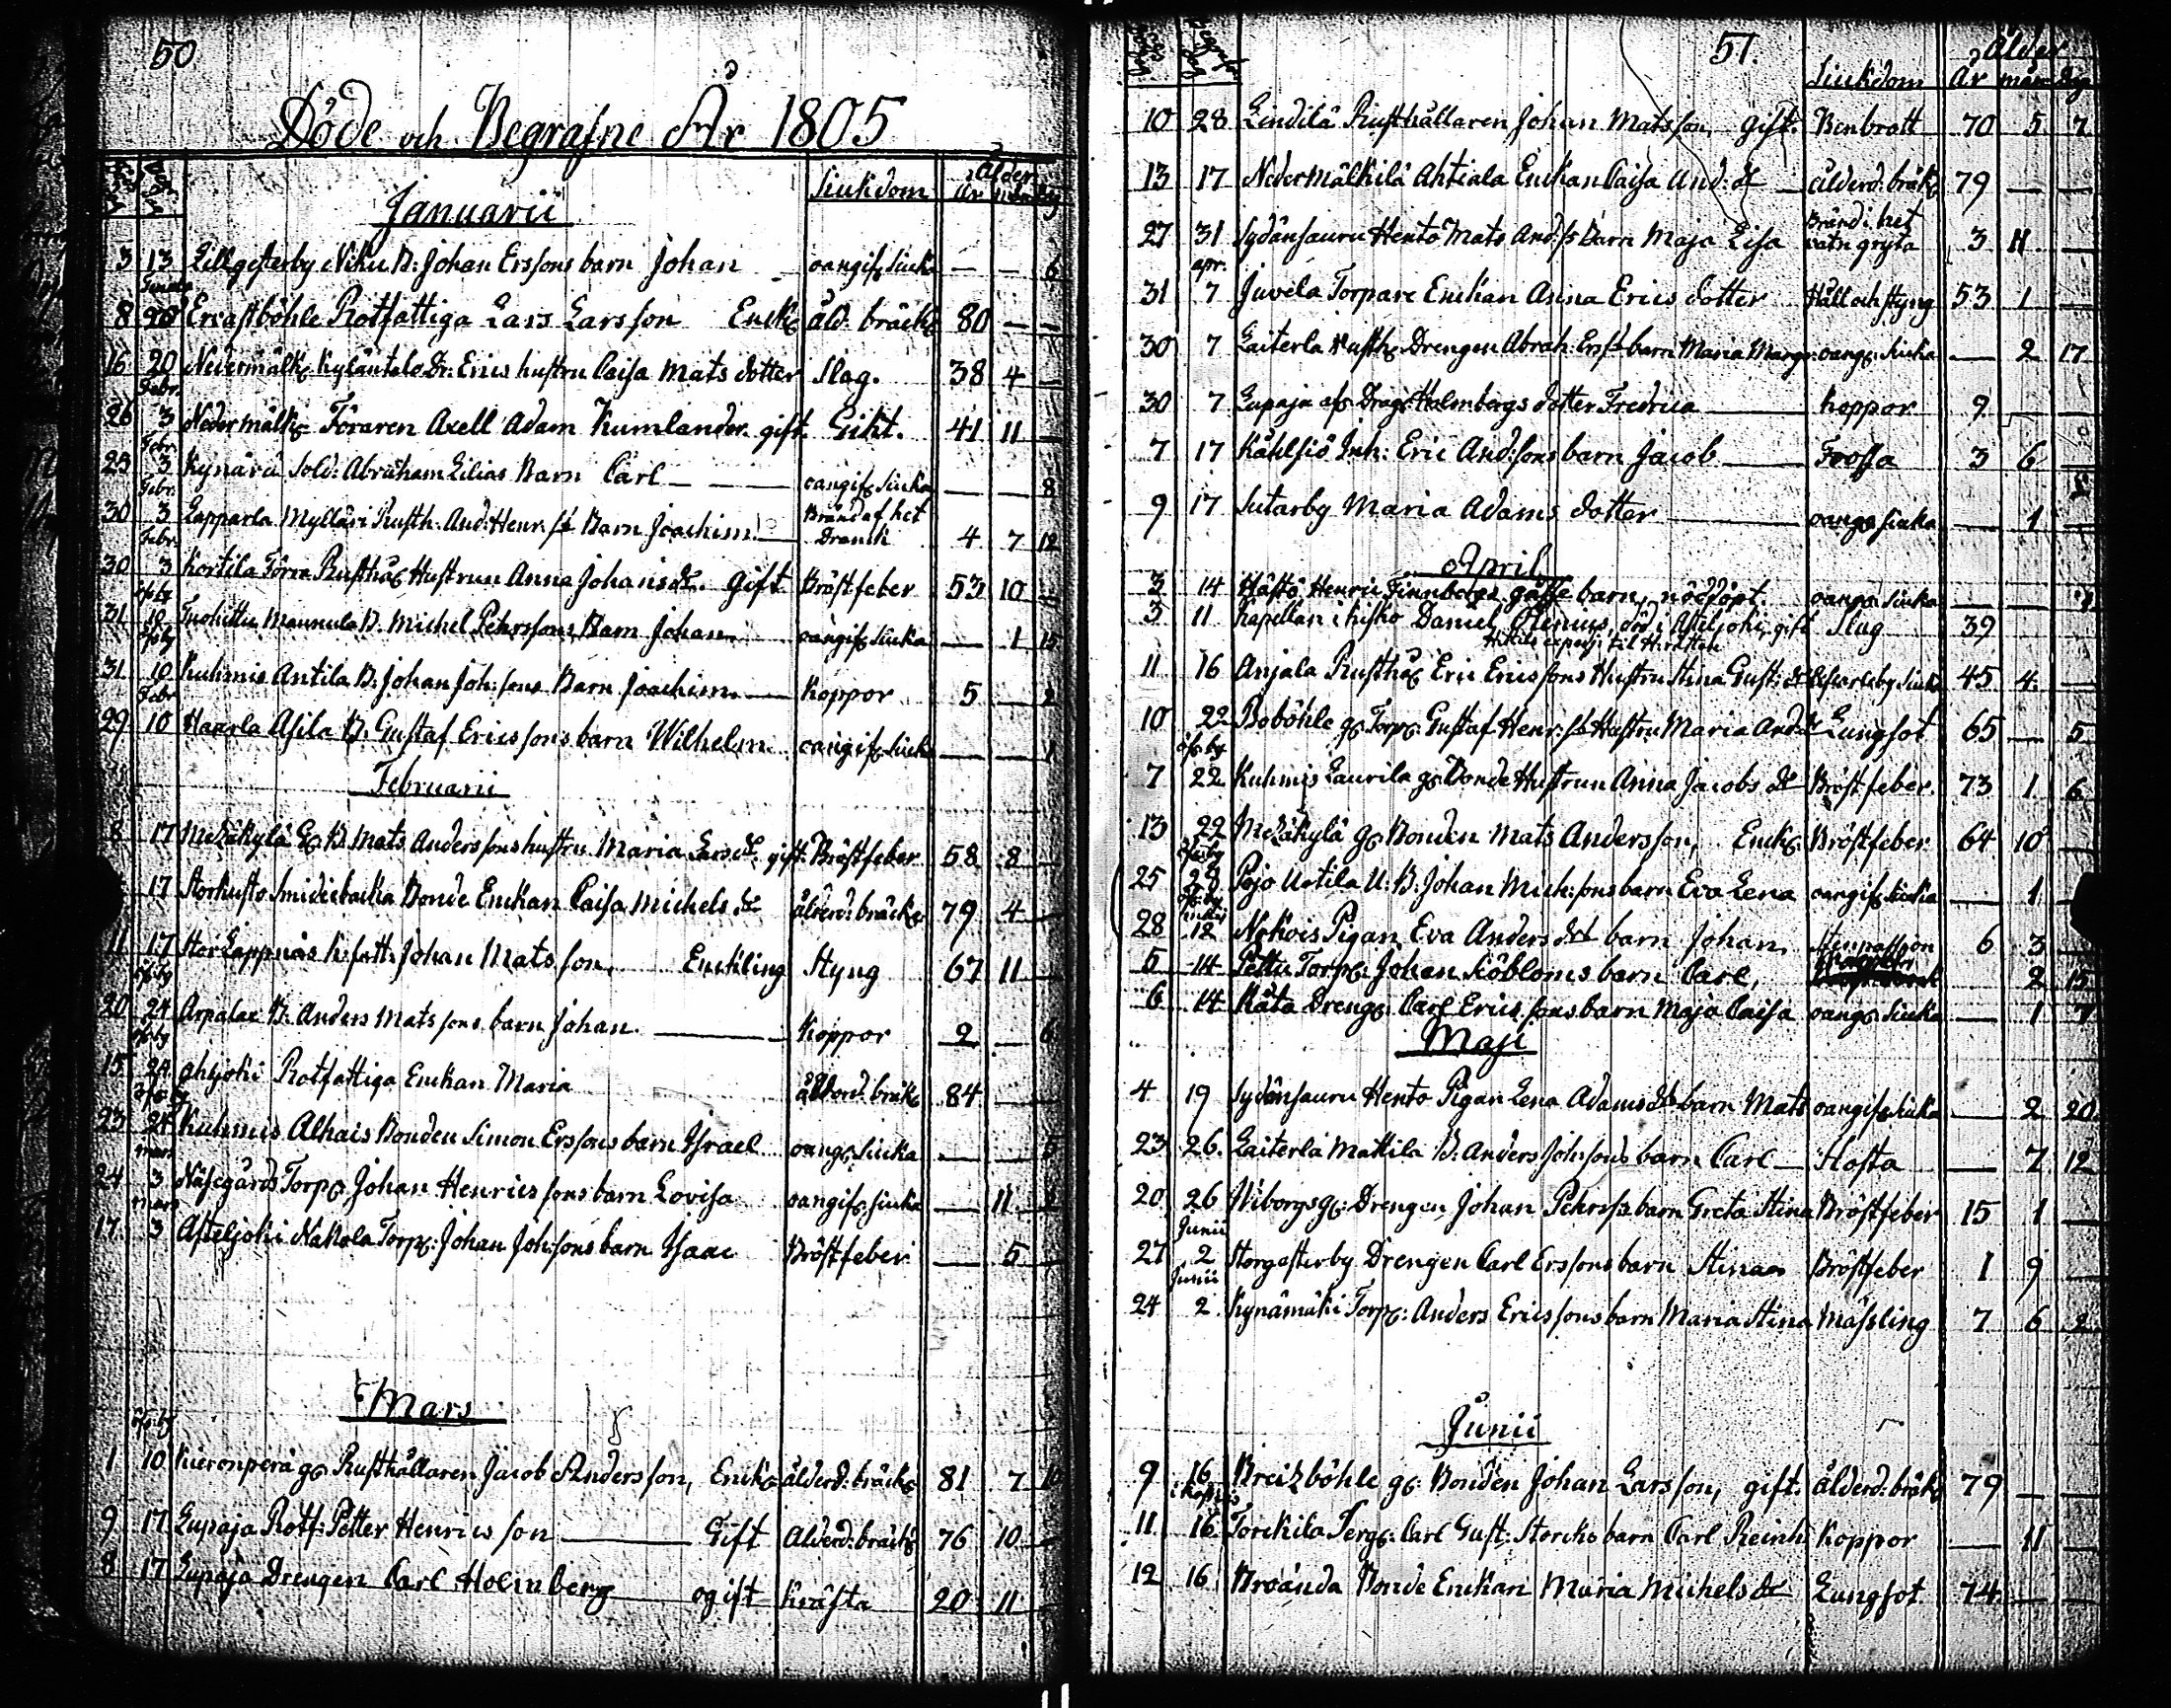 50
Döde och Begrafne År 1805
Ålder
Januarii Siukdom År
3 13 Lillgesterby Niku B: Johan Erssons barn Johan oangif. siuka — — 6
8 Ervastböhle Rotfattiga Lars Larsson Enckl. åld. bräckl. 80 — —
16 20 Nedermälk. Kyläntalo Dr: Erics hustru Caisa Mats dotter Slag. 38 4 —
Febr.
26 3 Nedermälk. Föraren Axell Adam Kumlander gift. Gikt. 41 11 —
Febr.
25 3 Kynärä Sold: Abraham Lilias Barn Carl — — — oangif. siuka — — 8
Febr.
30 3 Lapparla Mylläri Rusth. And: Henr. ss Barn Joachim Bränd af het
Febr. Dranck 4 7 12
30 3 Kortila Rusthål. Hustrun Anna Johans dr. gift Bröstfeber 53 10 —
31 10 Tuohittu Mannula B. Michel Pehrssons Barn Johan oangif. siuka — 1 15
31 10 Kuhmis Antila B: Johan Joh: sons Barn Joachim — Koppor 5 — 2
Febr
29 10 Haarla Asila B. Gustaf Ericssons barn Wilhelm oangif. siuka — — 1
Februarii
8 17 Metzäkylä B. Mats Anderssons hustru Maria Lars dr. gift. Bröstfeber 58 8 —
17 Storhusto Smidiebacka Bonde Enckan Caisa Michels dr ålderd: bräckl. 79 4 —
11 17 Stor Lappnäs Johan Matsson, Enckling Styng 67 11 —
20 24 Arpalax B. Anders Matssons barn Johan — Koppor 2 — 6
15 24 Ahijoki Rotfattiga Enckan Maria ålderd. bräkl. 84 — —
23 24 Kuhmis Alhais Bonden Simon Erssons barn Israel oang. siuka — — 5
mars
24 3 Näsegårds Torp. Johan Henricssons barn Lovisa oangif. siuka — 11 2
mars
17 3 Asteljoki Nakola Torp. Johan Joh: sons barn Isaac Bröstfeber — 5 —
Mars
1 10 Rusthållaren Jacob Andersson, Enckl. ålderd: bräckl. 81 7 10
9 17 Lupaja Rotf: Petter Henricsson — Gift Ålderd: bräckl. 76 10 —
8 17 Lupaja Drengen Carl Holmberg ogift Kräfta 20 11
51.
Siukdom Ålder
År mån: dag.
10 28 Lindilä Rusthållaren Johan Matsson, gift. Benbrott 70 5 7
13 17 Nedermälkilä Ahtiala Enckan Caisa And: dr — ålderd: bräkl. 79 — —
27 31 Sydänsauru Hento Mats And: ss Barn Maja Lisa Bränd i het
vatn gryta 3 11 —
apr.
31 7 Juvela Torpare Enckan Anna Erics dotter Håll och styng 53 1 —
30 7 Laiterla Rusth. Drengen Abrah: Erss barn Maria Margr. oang. siuka — 2 17
30 7 Lupaja afs. Drag. Holmbergs dotter Fredrica — koppor 9 — —
7 17 Kählsiö Inh: Eric And: sons barn Jacob — Frossa 3 6 —
9 17 Sutarby Maria Adams dotter — oang. siuka — 1 —
April
3 14 Hästö Henric Finnbergs gosse barn, nöddöpt. oang. siuka — —
3 11 Kapellan i Kisko Daniel Olenius, död i Asteljoki, gift Slag 39
11 16 Anjala Rusthål. Eric Ericssons Hustru Stina Gust: dr siuka 45 4. —
10 22 Boböhle g. Torp. Gustaf Henr: ss Hustru Maria And: dr Lungsot 65 — 5
7 22 Kuhmis Laurila g. Bonde Hustrun Anna Jacobs dr Bröstfeber. 73 1 6
13 22 Metzäkylä g. Bonden Mats Andersson, Enckl. Bröstfeber 64 10 —
25 28 Pojo Uotila U. B. Johan Mich: sons barn Eva Lena oangif. siuka — 1
28 12 Nokois Pigan Eva Anders dr barn Johan Stenpassion 6 3 —
5 14 Pettu Torp. Johan Siöbloms barn Carl, 2 15
6 14 Räta Dreng. Carl Ericssons barn Maja Caisa oang. siuka — 1 7
Maji
4 19 Sydänsauru Hento Pigan Lena Adams dr barn Mats oangif. siuka — 2 20
23 26. Laiterla Mattila B: Anders Joh: sons barn Carl — Hosta — 7 12
20 26 Wiborgs g. Drengen Johan Pehrss. barn Greta Stina Bröstfeber 15 1 —
Junii
27 2 Storgesterby Drengen Carl Erssons barn Stina Bröstfeber 1 9 —
Junii
24 2. Kynämäki Torp: Anders Ericssons barn Maria Stina Mässling 7 6 2
Junii
9 16 Breitzböhle g. Bonden Johan Larsson, gift. ålderd: bräkl. 79 — —
11 16 Torckila Serg. Carl Gust: Storcks barn Carl Reinh. Koppor — 11 —
12 16 Broända Bonde Enckan Maria Michels dr Lungsot 74 — —